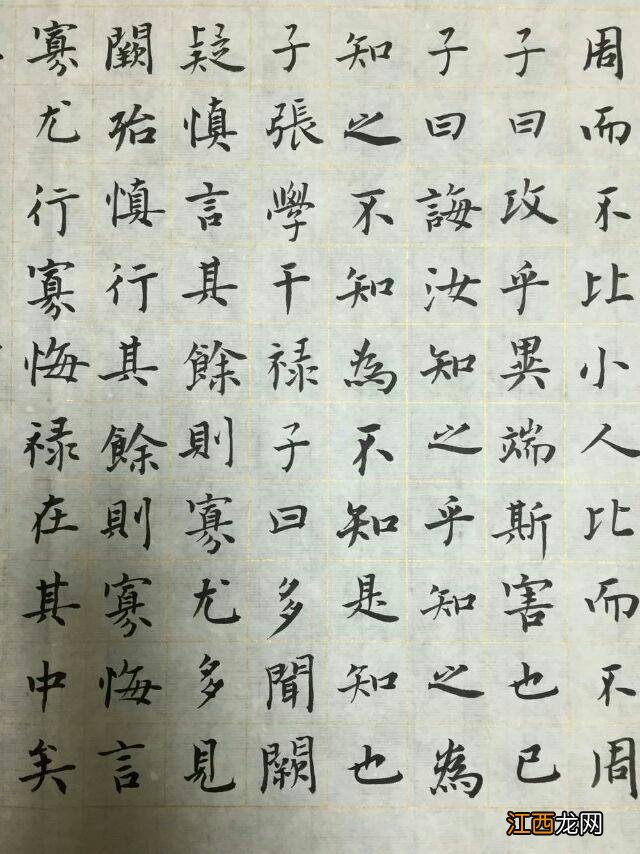 周而不比小人比而不周
子曰攻乎異端斯害也已
子曰誨汝知之乎知之為
知之不知為不知是知也
子張學干祿子曰多聞闕
疑慎言其餘則寡尤多見
闕殆慎行其餘則寡悔言
寡尤行寡悔祿在其中矣
江西龙网